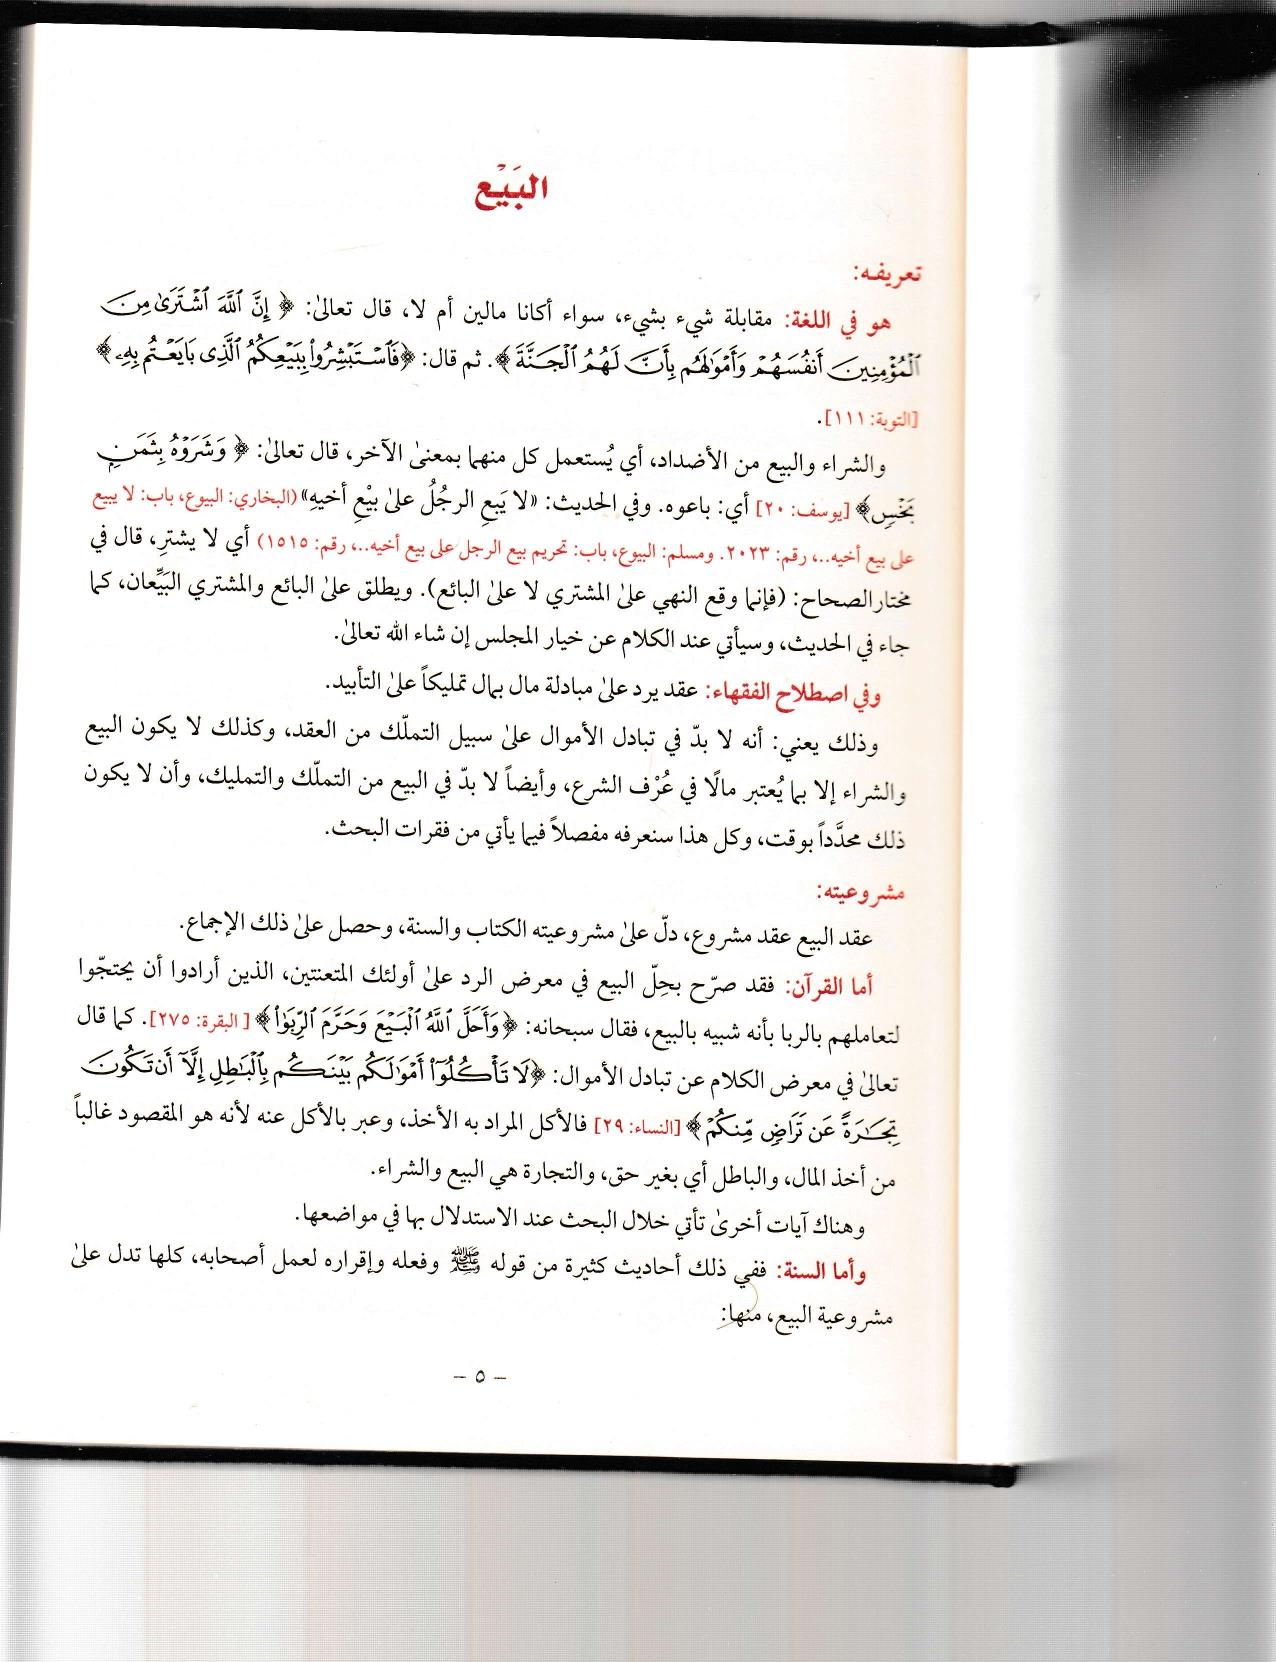 البَيْع
تعريفه:
هو في اللغة: مقابلة شيء بشيء، سواء أكانا مالين أم لا، قال تعالىٰ: ﴿ إِنَّ ٱللَّهَ ٱشْتَرَىٰ مِنَ
ٱلْمُؤْمِنِينَ أَنفُسَهُمْ وَأَمْوَٰلَهُم بِأَنَّ لَهُمُ ٱلْجَنَّةَ ﴾. ثم قال: ﴿فَٱسْتَبْشِرُوا۟ بِبَيْعِكُمُ ٱلَّذِى بَايَعْتُم بِهِۦ ﴾
[التوبة: ١١١].
والشراء والبيع من الأضداد، أي يُستعمل كل منهما بمعنىٰ الآخر، قال تعالىٰ: ﴿ وَشَرَوْهُ بِثَمَنٍۭ
بَخْسٍ﴾ [يوسف: ٢٠] أي: باعوه. وفي الحديث: «لا يَبعِ الرجُلُ علىٰ بيْعِ أخيهِ» (البخاري: البيوع، باب: لا يبيع
على بيع أخيه..، رقم: ٢٠٢٣. ومسلم: البيوع، باب: تحريم بيع الرجل على بيع أخيه..، رقم: ١٥١٥) أي لا يشترِ، قال في
مختار الصحاح: (فإنما وقع النهي علىٰ المشتري لا علىٰ البائع). ويطلق علىٰ البائع والمشتري البَيِّعان، كما
جاء في الحديث، وسيأتي عند الكلام عن خيار المجلس إن شاء الله تعالىٰ.
وفي اصطلاح الفقهاء: عقد يرد علىٰ مبادلة مال بمال تمليكاً علىٰ التأبيد.
وذلك يعني: أنه لا بدّ في تبادل الأموال علىٰ سبيل التملّك من العقد، وكذلك لا يكون البيع
والشراء إلا بما يُعتبر مالًا في عُرْف الشرع، وأيضاً لا بدّ في البيع من التملّك والتمليك، وأن لا يكون
ذلك محدَّداً بوقت، وكل هذا سنعرفه مفصلاً فيما يأتي من فقرات البحث.
مشروعيته:
عقد البيع عقد مشروع، دلّ علىٰ مشروعيته الكتاب والسنة، وحصل علىٰ ذلك الإجماع.
أما القرآن: فقد صرّح بحِلّ البيع في معرض الرد علىٰ أولئك المتعنتين، الذين أرادوا أن يحتجّوا
لتعاملهم بالربا بأنه شبيه بالبيع، فقال سبحانه: ﴿وَأَحَلَّ ٱللَّهُ ٱلْبَيْعَ وَحَرَّمَ ٱلرِّبَوٰا۟ ﴾ [ البقرة: ٢٧٥]. كما قال
تعالىٰ في معرض الكلام عن تبادل الأموال: ﴿لَا تَأْكُلُوٓا۟ أَمْوَٰلَكُم بَيْنَكُم بِٱلْبَٰطِلِ إِلَّآ أَن تَكُونَ
تِجَٰرَةً عَن تَرَاضٍ مِّنكُمْ ﴾ [النساء: ٢٩] فالأكل المراد به الأخذ، وعبر بالأكل عنه لأنه هو المقصود غالباً
من أخذ المال، والباطل أي بغير حق، والتجارة هي البيع والشراء.
وهناك آيات أخرىٰ تأتي خلال البحث عند الاستدلال بها في مواضعها.
وأما السنة: ففي ذلك أحاديث كثيرة من قوله ﷺ وفعله وإقراره لعمل أصحابه، كلها تدل علىٰ
مشروعية البيع، منها:
– ٥ –